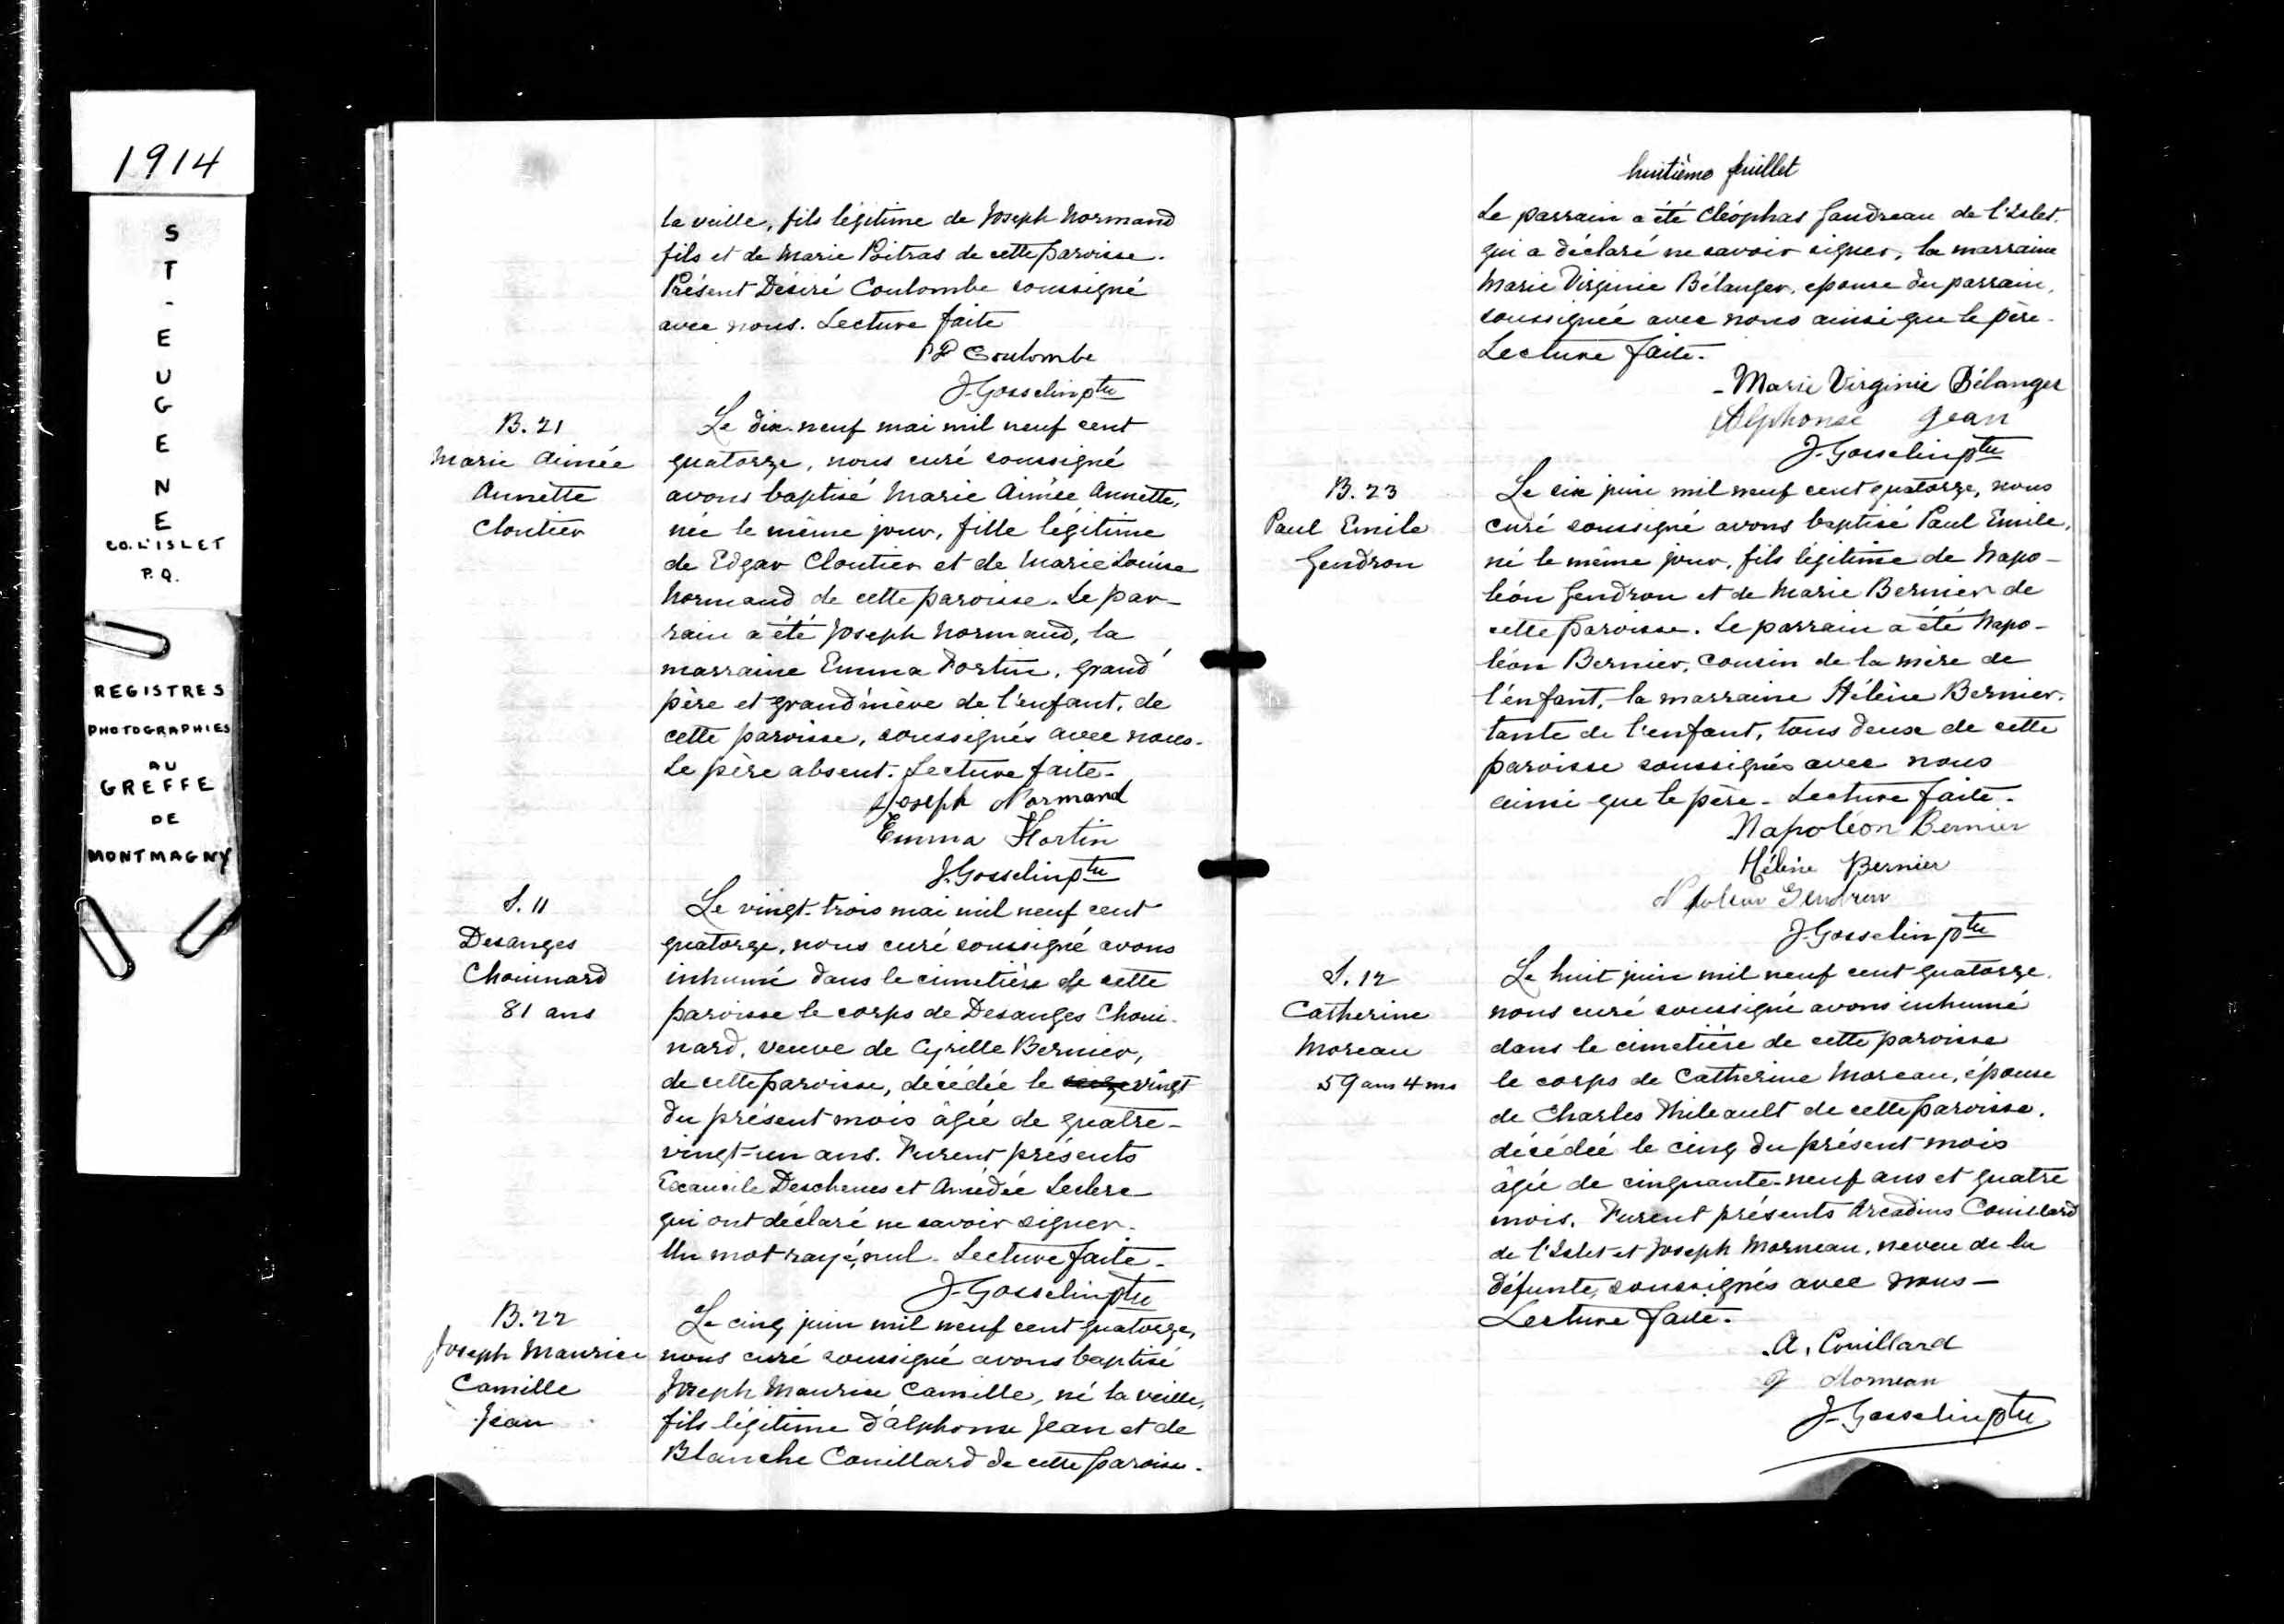 1914
ST-EUGENE
CO. L'ISLET
P.Q.
REGISTRES
PHOTOGRAPHIES
AU
GREFFE
DE
MONTMAGNY
la veille, fils légitime de Joseph Normand
fils et de Marie Poitras de cette paroisse.
Présent Désiré Coulombe soussigné
avec nous. Lecture faite
Coulombe
J. Gosselin ptre
B. 21
Marie Aimée
Annette
Cloutier
Le dix-neuf mai mil neuf cent
quatorze, nous curé soussigné
avons baptisé Marie Aimée Annette,
née le même jour, fille légitime
de Edgar Cloutier et de Marie Louise
Normand de cette paroisse. Le par-
rain a été Joseph Normand, la
marraine Emma Fortin, grand
père et grand'mère de l'enfant, de
cette paroisse, soussignés avec nous.
Le père absent. Lecture faite.
Joseph Normand
Emma Fortin
J. Gosselin ptre
S. 11
Desanges
Chouinard
81 ans
Le vingt-trois mai mil neuf cent
quatorze, nous curé soussigné avons
inhumé dans le cimetière de cette
paroisse le corps de Desanges Choui-
nard, veuve de Cyrille Bernier,
de cette paroisse, décédée le seize vingt
du présent mois âgée de quatre-
vingt-un ans. Furent présents
Deschenes et Amédée Leclerc
qui ont déclaré ne savoir signer.
Un mot rayé, nul. Lecture faite.
J. Gosselin ptre
B. 22
Joseph Maurice
Camille
Jean
Le cinq juin mil neuf cent quatorze,
nous curé soussigné avons baptisé
Joseph Maurice Camille, né la veille,
fils légitime d'Alphonse Jean et de
Blanche Couillard de cette paroisse.
huitième feuillet
Le parrain a été Cléophas Gaudreau de l'Islet.
qui a déclaré ne savoir signer, la marraine
Marie Virginie Bélanger, epouse du parrain,
soussignée avec nous ainsi que le père.
Lecture faite.
Marie Virginie Bélanger
Alphonse Jean
J. Gosselin ptre
B. 23
Paul Emile
Gendron
Le six juin mil neuf cent quatorze, nous
curé soussigné avons baptisé Paul Emile,
né le même jour, fils légitime de Napo-
léon Gendron et de Marie Bernier de
cette paroisse. Le parrain a été Napo-
léon Bernier, cousin de la mère de
l'enfant, la marraine Hélène Bernier,
tante de l'enfant, tous deux de cette
paroisse soussignés avec nous
ainsi que le père. Lecture faite.
Napoléon Bernier
Hélène Bernier
Gendron
J. Gosselin ptre
S. 12
Catherine
Moreau
59 ans 4 ms
Le huit juin mil neuf cent quatorze,
nous curé soussigné avons inhumé
dans le cimetière de cette paroisse
le corps de Catherine Moreau, épouse
de Charles Thibeault de cette paroisse,
décédée le cinq du présent mois
âgée de cinquante-neuf ans et quatre
mois. Furent présents Arcadius Couillard
de l'Islet et Joseph Morneau, neveu de la
défunte, soussignés avec nous —
Lecture faite.
A. Couillard
J Morneau
J. Gosselin ptre